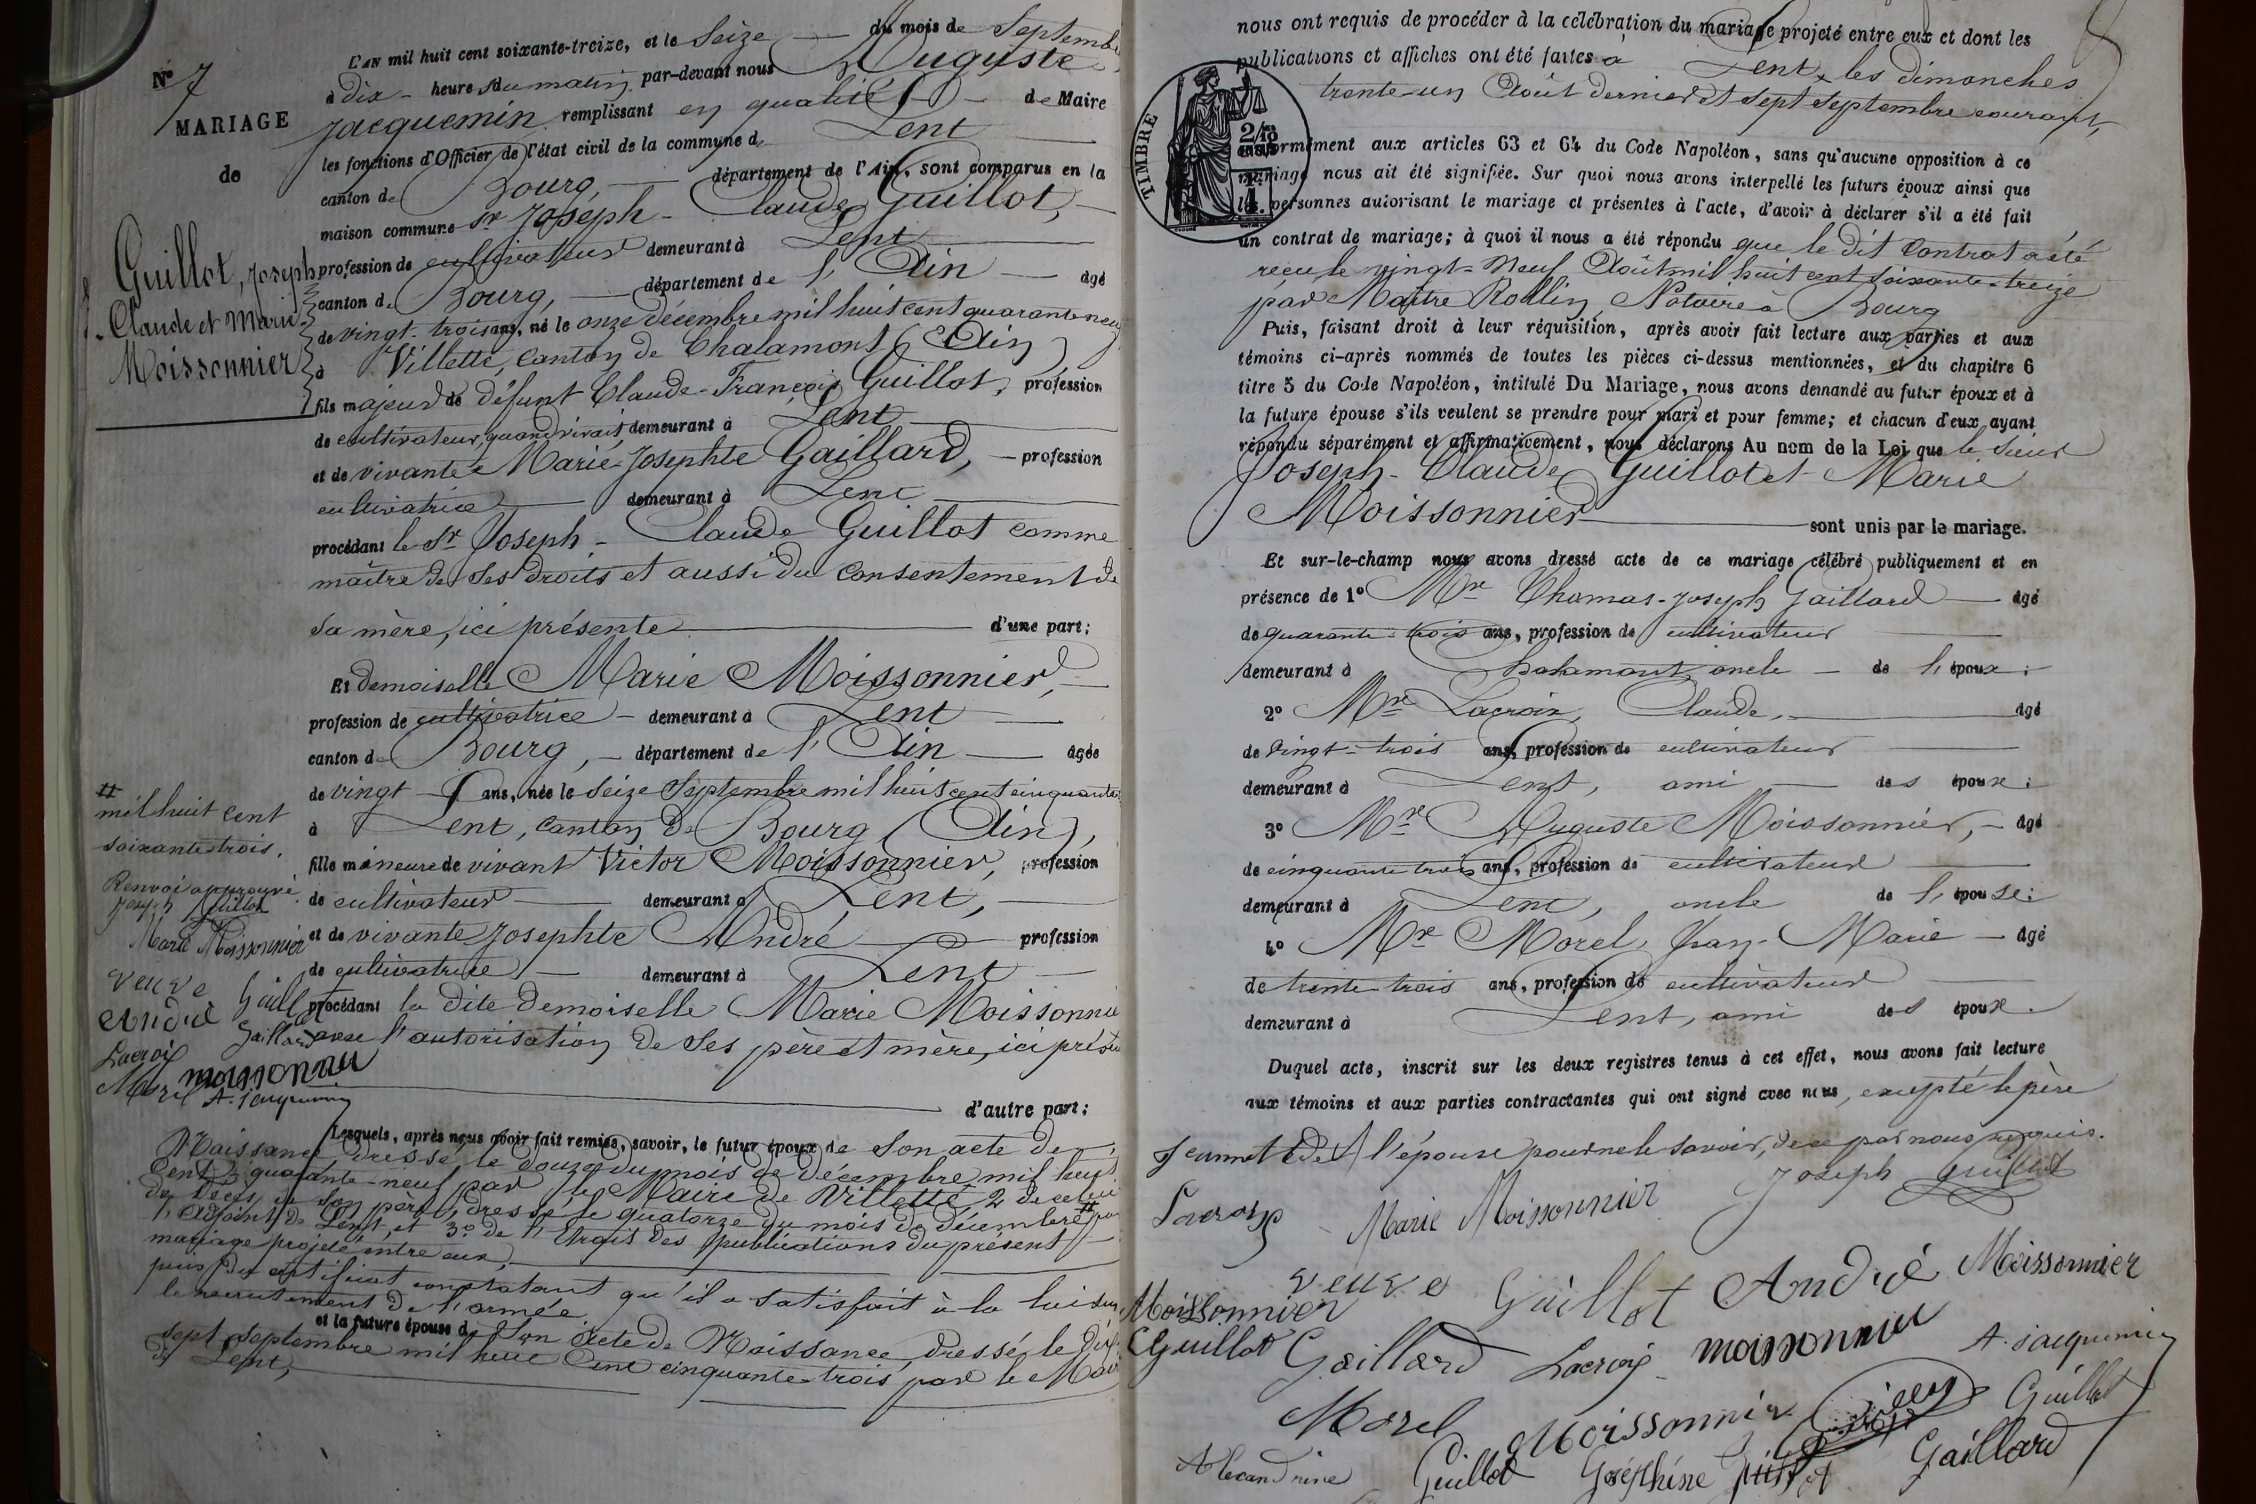 N° 7
MARIAGE
de
Guillot, Joseph
Claude et Marie
Moissonnier
L'AN mil huit cent soixante-treize, et le Seize du mois de Septembre
à dix heures du matin par-devant nous Auguste
Jacquemin remplissant en qualité de Maire
les fonctions d'Officier de l'état civil de la commune de Lent
canton de Bourg, département de l'Ain, sont comparus en la
maison commune Sr Joseph-Claude Guillot,
profession de cultivateur demeurant à Lent
canton de Bourg, département de l'Ain agé
de vingt-trois ans, né le onze décembre mil huit cent quarante neuf
à Villette, canton de Chalamont (Ain)
fils majeur de défunt Claude-François Guillot, profession
de cultivateur, quand vivait, demeurant à Lent
et de vivante Marie-Josephte Gaillard, profession
cultivatrice demeurant à Lent
procédant le Sr Joseph-Claude Guillot comme
maître de ses droits et aussi du consentement de
sa mère, ici présente d'une part;
Et demoiselle Marie Moissonnier,
profession de cultivatrice demeurant à Lent
canton de Bourg, département de l'Ain agée
de vingt ans, née le seize Septembre mil huit cent cinquante
à Lent, canton de Bourg (Ain),
fille mineure de vivant Victor Moissonnier, profession
de cultivateur demeurant à Lent,
et de vivante Josephte André profession
de cultivatrice demeurant à Lent
procédant la dite demoiselle Marie Moissonnier
avec l'autorisation de ses père et mère, ici présents
d'autre part;
mil huit cent
soixante trois.
Renvoi approuvé
Joseph Guillot
Marie Moissonnier
veuve Guillot
André
Gaillard
Lacroix
Morel moissonnier
A. Jacquemin
Lesquels, après nous avoir fait remise, savoir, le futur époux de son acte de
Naissance dressé le douze du mois de décembre mil huit
cent quarante-neuf par le Maire de Villette 2° de celui
de décès de son père, dressé le quatorze du mois de décembre # par
l'adjoint de Lent, et 3° de l'extrait des publications du présent
mariage projeté entre eux,
puis du certificat constatant qu'il a satisfait à la loi sur
le recrutement de l'armée
et la future épouse de son acte de Naissance, dressé le dix
sept septembre mil huit cent cinquante-trois par le Maire
de Lent,
nous ont requis de procéder à la célébration du mariage projeté entre eux et dont les
publications et affiches ont été faites à Lent, les dimanches
trente-un Août dernier et sept septembre courant,
TIMBRE
conformément aux articles 63 et 64 du Code Napoléon, sans qu'aucune opposition à ce
mariage nous ait été signifiée. Sur quoi nous avons interpellé les futurs époux ainsi que
les personnes autorisant le mariage et présentes à l'acte, d'avoir à déclarer s'il a été fait
un contrat de mariage; à quoi il nous a été répondu que le dit contrat a été
reçu le vingt-neuf Août mil huit cent soixante-treize
par Maître Rollin Notaire à Bourg
Puis, faisant droit à leur réquisition, après avoir fait lecture aux parties et aux
témoins ci-après nommés de toutes les pièces ci-dessus mentionnées, et du chapitre 6
titre 5 du Code Napoléon, intitulé Du Mariage, nous avons demandé au futur époux et à
la future épouse s'ils veulent se prendre pour mari et pour femme; et chacun d'eux ayant
répondu séparément et affirmativement, nous déclarons Au nom de la Loi que le Sieur
Joseph-Claude Guillot et Marie
Moissonnier sont unis par le mariage.
Et sur-le-champ nous avons dressé acte de ce mariage célébré publiquement et en
présence de 1° Mr Thomas-Joseph Gaillard agé
de quarante-trois ans, profession de cultivateur
demeurant à Chalamont, oncle de l'époux;
2° Mr Lacroix, Claude, agé
de vingt-trois ans, profession de cultivateur
demeurant à Lent, ami des époux;
3° Mr Auguste Moissonnier, agé
de cinquante trois ans, profession de cultivateur
demeurant à Lent, oncle de l'épouse;
4° Mr Morel, Jean-Marie agé
de trente-trois ans, profession de cultivateur
demeurant à Lent, ami des époux.
Duquel acte, inscrit sur les deux registres tenus à cet effet, nous avons fait lecture
aux témoins et aux parties contractantes qui ont signé avec nous, excepté le père
de l'épouse pour ne le savoir, de ce par nous requis.
Joseph Guillot
Lacroix Marie Moissonnier
veuve Guillot André Moissonnier
Moissonnier
Guillot Gaillard Lacroix moissonnier A. Jacquemin
Morel Moissonnier Guillot
Alexandrine Guillot Joséphine Guillot Gaillard